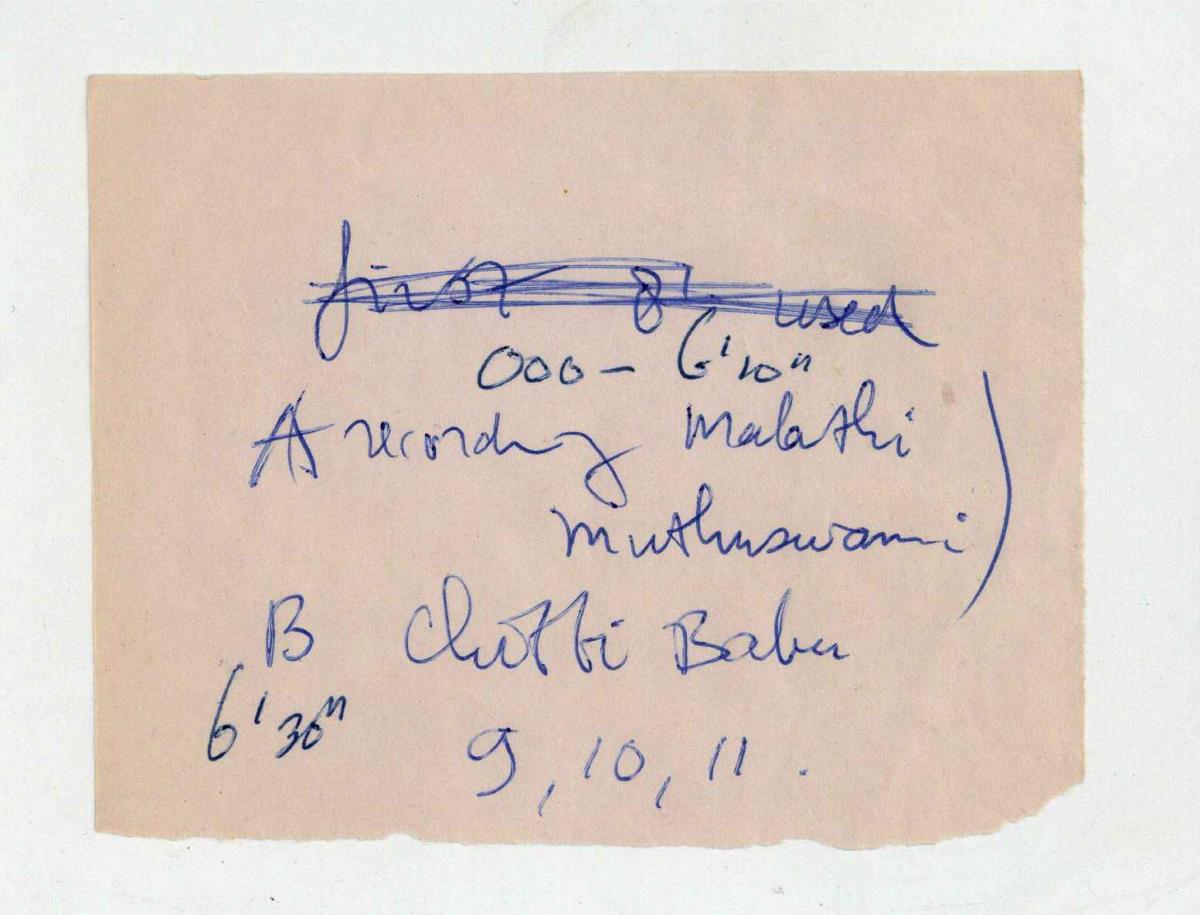 first 8 used
000 - 6'10"
A recording Malathi
Muthuswami)
B Chitti Babu
6'30"
9, 10, 11.